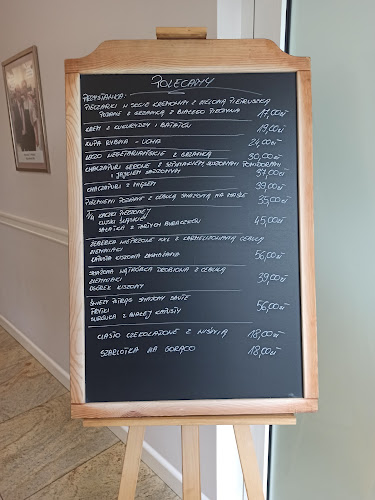 POLECAMY
PRZYSTAWKA:
PIECZARKI W SOSIE KREMOWYM Z ZIELONĄ PIETRUSZKĄ
PODANE Z GRZANKĄ Z BIAŁEGO PIECZYWA 17,00zł
KREM Z KUKURYDZY I BATATÓW 19,00zł
ZUPA RYBNA - UCHA 24,00zł
LECZO WEGETARIAŃSKIE Z GRZANKĄ 30,00zł
CHACZAPURI SEROWE Z SUSZONYMI POMIDORAMI
I JAJKIEM SADZONYM 37,00zł
CHACZAPURI Z MIĘSEM 39,00zł
PIELMIENI PODANY Z CEBULĄ SMAŻONĄ NA MAŚLE 35,00zł
1/4 KACZKI PIECZONEJ
KLUSKI ŚLĄSKIE
SAŁATKA Z TARTYCH BURACZKÓW 45,00zł
ŻEBERKA WIEPRZOWE XXL Z KARMELIZOWANĄ CEBULĄ
ZIEMNIAKI
KAPUSTA KISZONA ZASMAŻANA 56,00zł
SMAŻONA WĄTRÓBKA DROBIOWA Z CEBULĄ
ZIEMNIAKI
OGÓREK KISZONY 39,00zł
ŚWIEŻY PSTRĄG SMAŻONY SAUTE
FRYTKI
SURÓWKA Z BIAŁEJ KAPUSTY 56,00zł
CIASTO CZEKOLADOWE Z WIŚNIĄ 18,00zł
SZARLOTKA NA GORĄCO 18,00zł